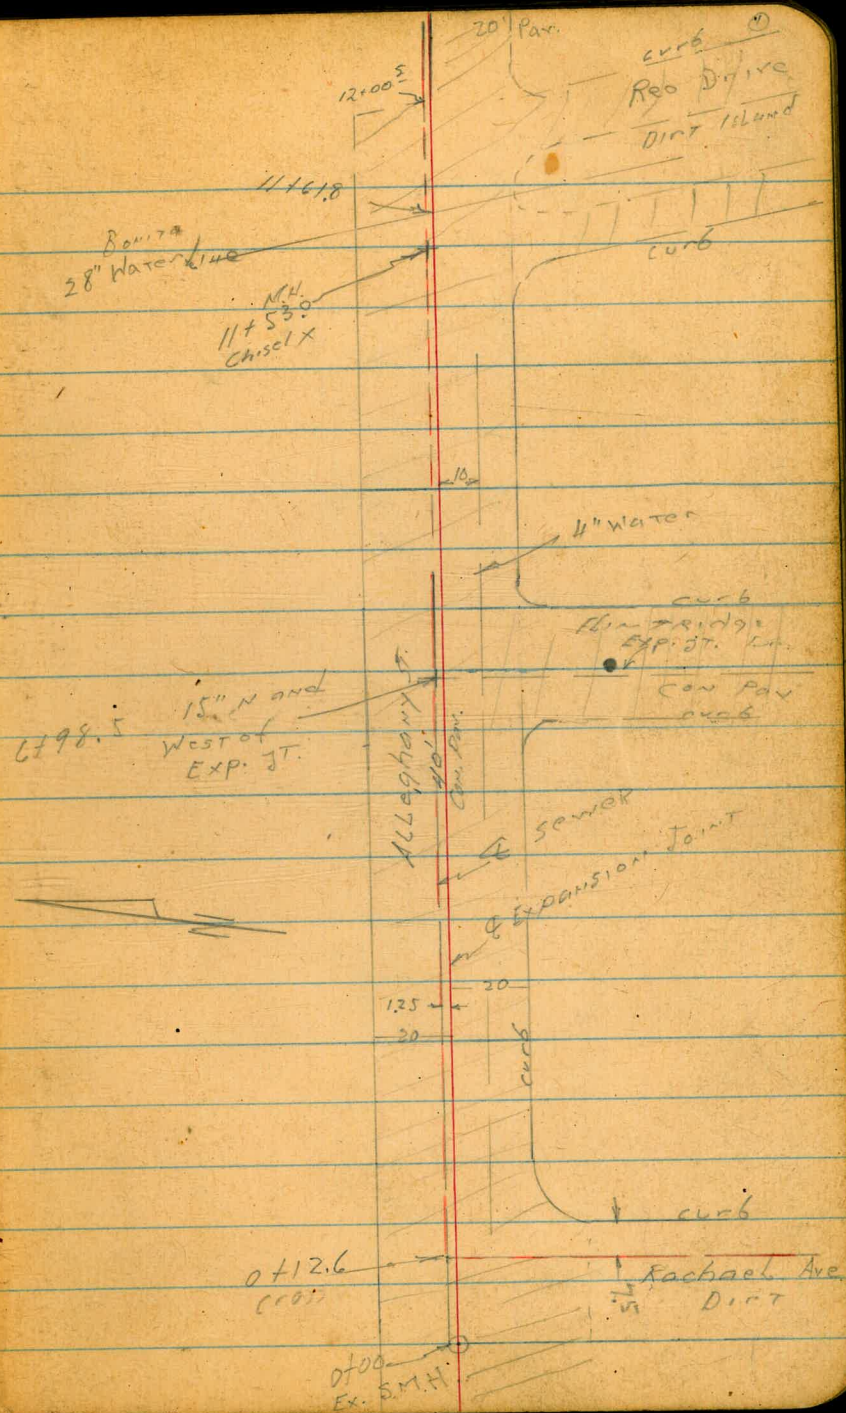 ①
20' Par.
curb
Reo Drive
Dirt Island
12+00⁵
11+61.8
Bonita
28" Water Line
curb
M.H.
11+53.0
Chisel X
10
4" Water
curb
Flintridge
Exp. JT.
Con Pav
curb
15" N and
West of
Exp. JT.
6+98.5
ALLeghany ST.
40'
Con. Pav.
₵ Sewer
₵ Expansion Joint
20
1.25
20
curb
curb
0+12.6
cross
Rachael Ave
Dirt
0+00
Ex. S.M.H